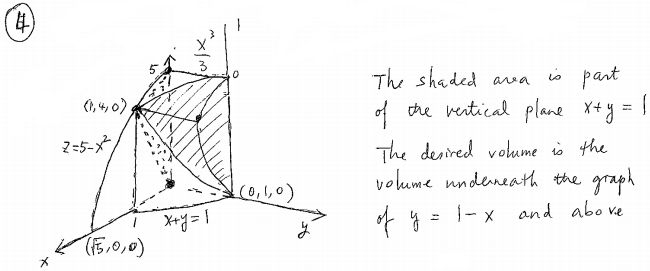 4
1
x³/3
0
5
(1,4,0)
z=5-x²
(0,1,0)
x+y=1
(√5,0,0)
x
y
The shaded area is part
of the vertical plane x+y = 1
The desired volume is the
volume underneath the graph
of y = 1-x and above